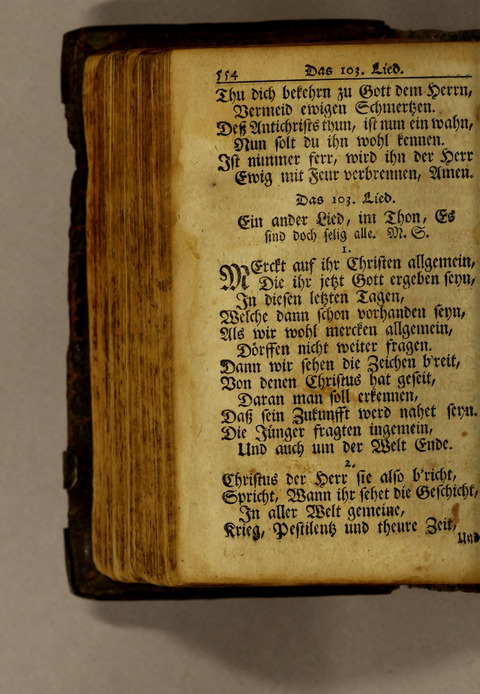 554 Das 103. Lied.
Thu dich bekehrn zu Gott dem Herrn,
Vermeid ewigen Schmertzen.
Deß Antichrists thun, ist nun ein wahn,
Nun solt du ihn wohl kennen.
Ist nimmer ferr, wird ihn der Herr
Ewig mit Feur verbrennen, Amen.
Das 103. Lied.
Ein ander Lied, im Thon, Es
sind doch selig alle. M. S.
1.
MErckt auf ihr Christen allgemein,
Die ihr jetzt Gott ergeben seyn,
In diesen letzten Tagen,
Welche dann schon vorhanden seyn,
Als wir wohl mercken allgemein,
Dörffen nicht weiter fragen.
Dann wir sehen die Zeichen b'reit,
Von denen Christus hat geseit,
Daran man soll erkennen,
Daß sein Zukunfft werd nahet seyn.
Die Jünger fragten ingemein,
Und auch um der Welt Ende.
2.
Christus der Herr sie also b'richt,
Spricht, Wann ihr sehet die Geschicht,
In aller Welt gemeine,
Krieg, Pestilentz und theure Zeit,
Und